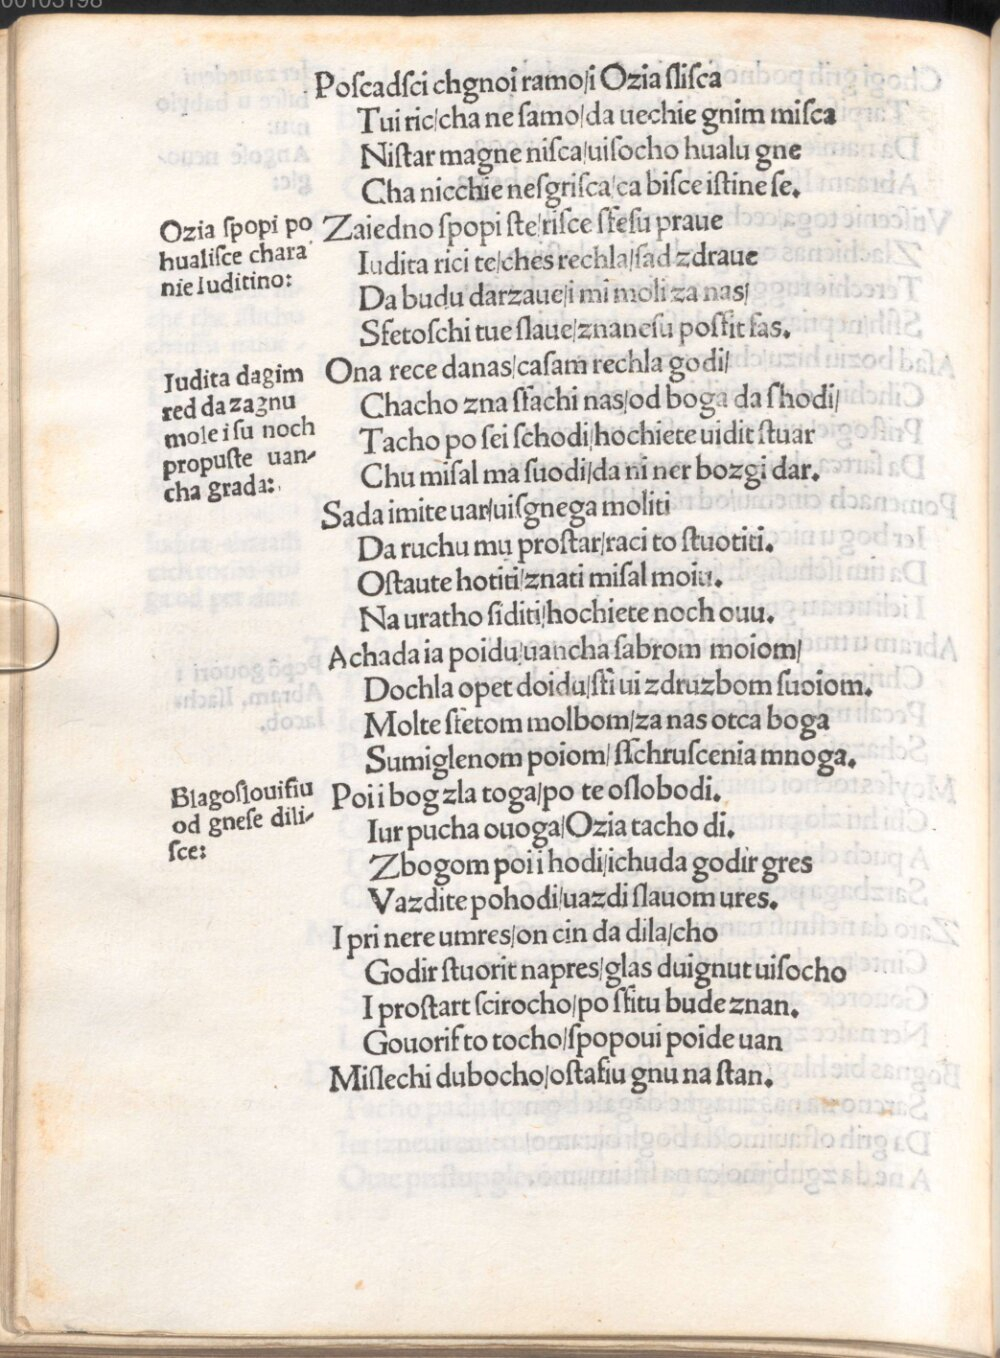 Poſcadſci chgnoi ramo/i Ozia ſliſca
Tui ric/cha ne ſamo/da uechie gnim miſca
Niſtar magne niſca/uiſocho hualu gne
Cha nicchie neſgriſca/ca biſce iſtine ſe.
Ozia ſpopi po
hualiſce chara
nie Iuditino:
Zaiedno ſpopi ſte/riſce ſfeſu praue
Iudita rici te/ches rechla/ſad zdraue
Da budu darzaue/i mi moli za nas/
Sfetoſchi tue ſlaue/znaneſu poſfit ſas.
Iudita dagim
red da zagnu
mole i ſu noch
propuſte uan-
cha grada:
Ona rece danas/caſam rechla godi/
Chacho zna ſfachi nas/od boga da ſhodi/
Tacho po ſei ſchodi/hochiete uidit ſtuar
Chu miſal ma ſuodi/da ni ner bozgi dar.
Sada imite uar/uiſgnega moliti
Da ruchu mu proſtar/raci to ſtuotiti.
Oſtaute hotiti/znati miſal moiu.
Na uratho ſiditi/hochiete noch ouu.
Achada ia poidu/uancha ſabrom moiom/
Dochla opet doidu/ſfi ui zdruzbom ſuoiom.
Molte ſfetom molbom/za nas otca boga
Sumiglenom poiom/ſſchruſcenia mnoga.
Blagoſlouiſiu
od gneſe dili-
ſce:
Poi i bog zla toga/po te oſlobodi.
Iur pucha ouoga/Ozia tacho di.
Zbogom poi i hodi/ichuda godir gres
Vazdite pohodi/uazdi ſlauom ures.
I pri nere umres/on cin da dila/cho
Godir ſtuorit napres/glas duignut uiſocho
I proſtart ſcirocho/po ſfitu bude znan.
Gouorif to tocho/ſpopoui poide uan
Miſlechi dubocho/oſtafiu gnu na ſtan.